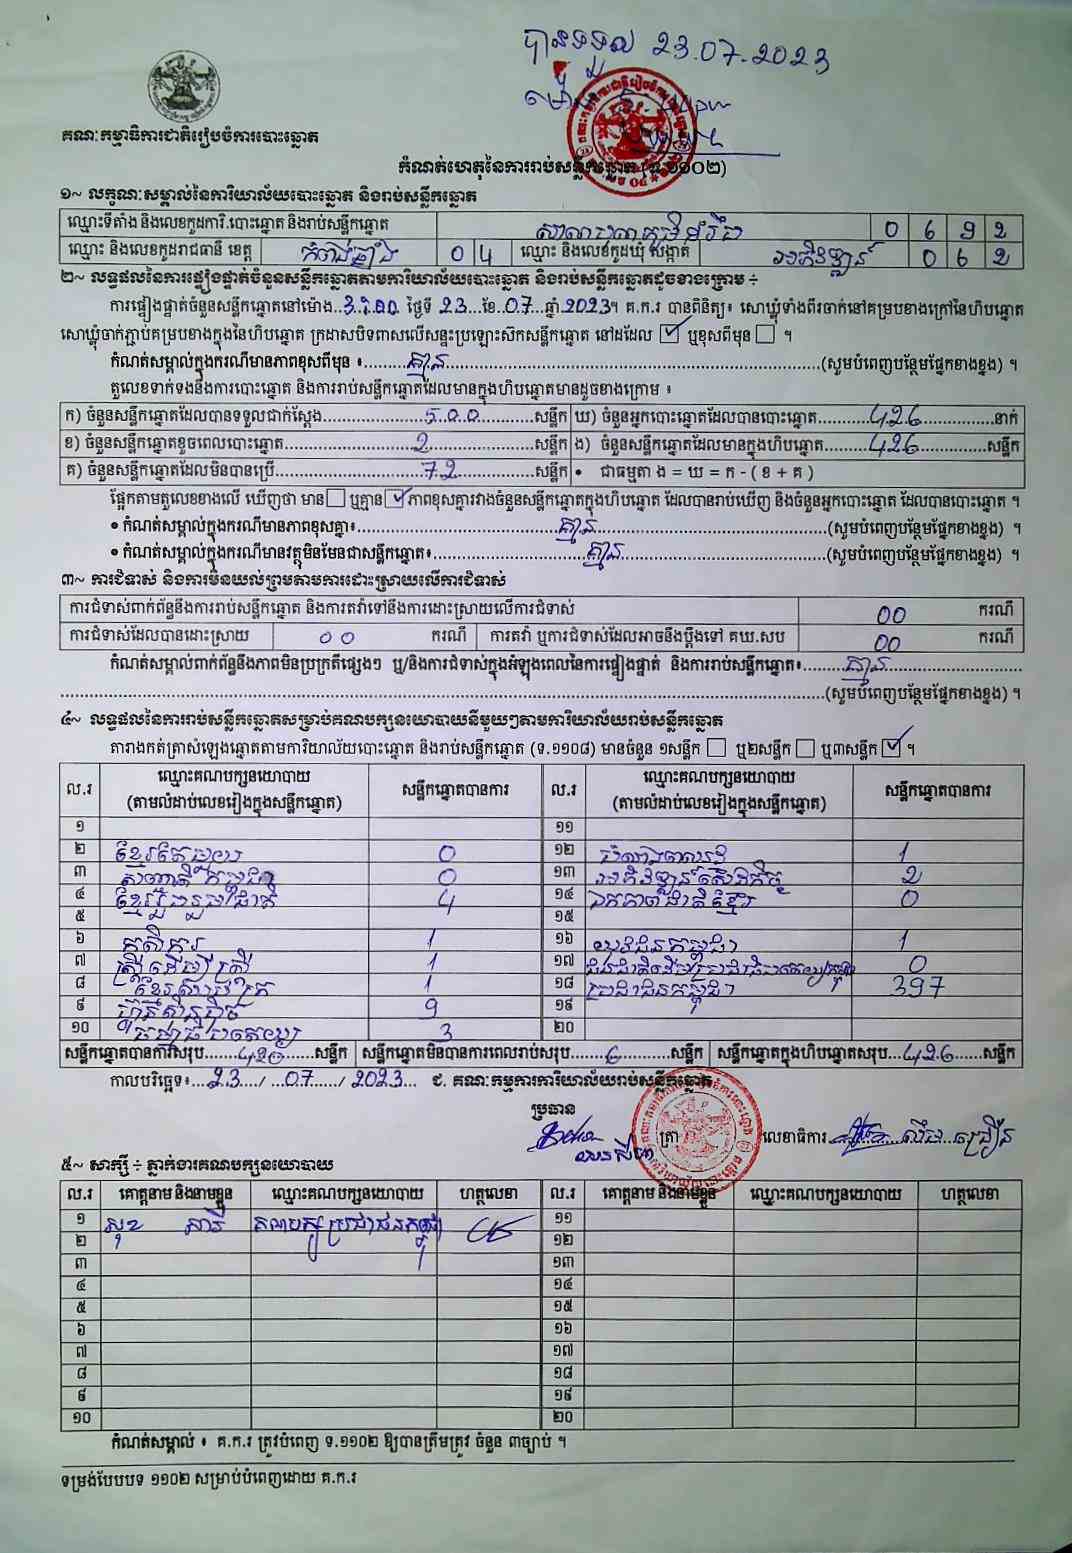 បានទទួល 23.07.2023
គណៈកម្មាធិការជាតិរៀបចំការបោះឆ្នោត
កំណត់ហេតុនៃការរាប់សន្លឹកឆ្នោត (ទ.១១០២)
១~ លក្ខណៈសម្គាល់នៃការិយាល័យបោះឆ្នោត និងរាប់សន្លឹកឆ្នោត
ឈ្មោះទីតាំង និងលេខកូដការិ.បោះឆ្នោត និងរាប់សន្លឹកឆ្នោត 0 6 9 2
ឈ្មោះ និងលេខកូដរាជធានី ខេត្ត កំពង់ឆ្នាំង 0 4 ឈ្មោះ និងលេខកូដឃុំ សង្កាត់ 0 6 2
២~ លទ្ធផលនៃការផ្ទៀងផ្ទាត់ចំនួនសន្លឹកឆ្នោតតាមការិយាល័យបោះឆ្នោត និងរាប់សន្លឹកឆ្នោតដូចខាងក្រោម ÷
ការផ្ទៀងផ្ទាត់ចំនួនសន្លឹកឆ្នោតនៅម៉ោង ថ្ងៃទី 23 ខែ 07 ឆ្នាំ 2023។ គ.ក.រ បានពិនិត្យ៖ សោឃ្លុំទាំងពីរចាក់នៅគម្របខាងក្រៅនៃហិបឆ្នោត
សោឃ្លុំចាក់ភ្ជាប់គម្របខាងក្នុងនៃហិបឆ្នោត ក្រដាសបិទពាសលើសន្ទះប្រឡោះស៊កសន្លឹកឆ្នោត នៅដដែល ☑ ឬខុសពីមុន ☐ ។
កំណត់សម្គាល់ក្នុងករណីមានភាពខុសពីមុន ៖ គ្មាន (សូមបំពេញបន្ថែមផ្នែកខាងខ្នង) ។
តួលេខទាក់ទងនឹងការបោះឆ្នោត និងការរាប់សន្លឹកឆ្នោតដែលមានក្នុងហិបឆ្នោតមានដូចខាងក្រោម ៖
ក) ចំនួនសន្លឹកឆ្នោតដែលបានទទួលជាក់ស្តែង 500 សន្លឹក ឃ) ចំនួនអ្នកបោះឆ្នោតដែលបានបោះឆ្នោត 426 នាក់
ខ) ចំនួនសន្លឹកឆ្នោតខូចពេលបោះឆ្នោត 2 សន្លឹក ង) ចំនួនសន្លឹកឆ្នោតដែលមានក្នុងហិបឆ្នោត 426 សន្លឹក
គ) ចំនួនសន្លឹកឆ្នោតដែលមិនបានប្រើ 72 សន្លឹក • ជាធម្មតា ង = ឃ = ក - ( ខ + គ )
ផ្អែកតាមតួលេខខាងលើ ឃើញថា មាន ☐ ឬគ្មាន ☑ ភាពខុសគ្នារវាងចំនួនសន្លឹកឆ្នោតក្នុងហិបឆ្នោត ដែលបានរាប់ឃើញ និងចំនួនអ្នកបោះឆ្នោត ដែលបានបោះឆ្នោត ។
• កំណត់សម្គាល់ក្នុងករណីមានភាពខុសគ្នា៖ គ្មាន (សូមបំពេញបន្ថែមផ្នែកខាងខ្នង) ។
• កំណត់សម្គាល់ក្នុងករណីមានវត្ថុមិនមែនជាសន្លឹកឆ្នោត៖ គ្មាន (សូមបំពេញបន្ថែមផ្នែកខាងខ្នង) ។
៣~ ការជំទាស់ និងការមិនយល់ព្រមតាមការដោះស្រាយលើការជំទាស់
ការជំទាស់ពាក់ព័ន្ធនឹងការរាប់សន្លឹកឆ្នោត និងការតវ៉ាទៅនឹងការដោះស្រាយលើការជំទាស់ 00 ករណី
ការជំទាស់ដែលបានដោះស្រាយ 00 ករណី ការតវ៉ា ឬការជំទាស់ដែលអាចនឹងប្តឹងទៅ គឃ.សប 00 ករណី
កំណត់សម្គាល់ពាក់ព័ន្ធនឹងភាពមិនប្រក្រតីផ្សេងៗ ឬ/និងការជំទាស់ក្នុងអំឡុងពេលនៃការផ្ទៀងផ្ទាត់ និងការរាប់សន្លឹកឆ្នោត៖ គ្មាន
(សូមបំពេញបន្ថែមផ្នែកខាងខ្នង) ។
៤~ លទ្ធផលនៃការរាប់សន្លឹកឆ្នោតសម្រាប់គណបក្សនយោបាយនីមួយៗតាមការិយាល័យរាប់សន្លឹកឆ្នោត
តារាងកត់ត្រាសំឡេងឆ្នោតតាមការិយាល័យបោះឆ្នោត និងរាប់សន្លឹកឆ្នោត (ទ.១១០៨) មានចំនួន ១សន្លឹក ☐ ឬ២សន្លឹក ☐ ឬ៣សន្លឹក ☑ ។
ល.រ ឈ្មោះគណបក្សនយោបាយ (តាមលំដាប់លេខរៀងក្នុងសន្លឹកឆ្នោត) សន្លឹកឆ្នោតបានការ ល.រ ឈ្មោះគណបក្សនយោបាយ (តាមលំដាប់លេខរៀងក្នុងសន្លឹកឆ្នោត) សន្លឹកឆ្នោតបានការ
១ ១១
២ ខ្មែរតែមួយ 0 ១២ 1
៣ សញ្ជាតិកម្ពុជា 0 ១៣ 2
៤ ខ្មែររួបរួមជាតិ 4 ១៤ ឯកភាពជាតិខ្មែរ 0
៥ ១៥
៦ កសិករ 1 ១៦ យុវជនកម្ពុជា 1
៧ ស្ត្រីដើម្បីស្ត្រី 1 ១៧ 0
៨ 1 ១៨ ប្រជាជនកម្ពុជា 397
៩ ហ្វ៊ុនស៊ិនប៉ិច 9 ១៩
១០ 3 ២០
សន្លឹកឆ្នោតបានការសរុប 420 សន្លឹក សន្លឹកឆ្នោតមិនបានការពេលរាប់សរុប 6 សន្លឹក សន្លឹកឆ្នោតក្នុងហិបឆ្នោតសរុប 426 សន្លឹក
កាលបរិច្ឆេទ៖ 23 / 07 / 2023 ជ. គណៈកម្មការការិយាល័យរាប់សន្លឹកឆ្នោត
ប្រធាន
ត្រា លេខាធិការ
៥~ សាក្សី ÷ ភ្នាក់ងារគណបក្សនយោបាយ
ល.រ គោត្តនាម និងនាមខ្លួន ឈ្មោះគណបក្សនយោបាយ ហត្ថលេខា ល.រ គោត្តនាម និងនាមខ្លួន ឈ្មោះគណបក្សនយោបាយ ហត្ថលេខា
១ សុខ គណបក្សប្រជាជនកម្ពុជា ១១
២ ១២
៣ ១៣
៤ ១៤
៥ ១៥
៦ ១៦
៧ ១៧
៨ ១៨
៩ ១៩
១០ ២០
កំណត់សម្គាល់ ៖ គ.ក.រ ត្រូវបំពេញ ទ.១១០២ ឱ្យបានត្រឹមត្រូវ ចំនួន ៣ច្បាប់ ។
ទម្រង់បែបបទ ១១០២ សម្រាប់បំពេញដោយ គ.ក.រ